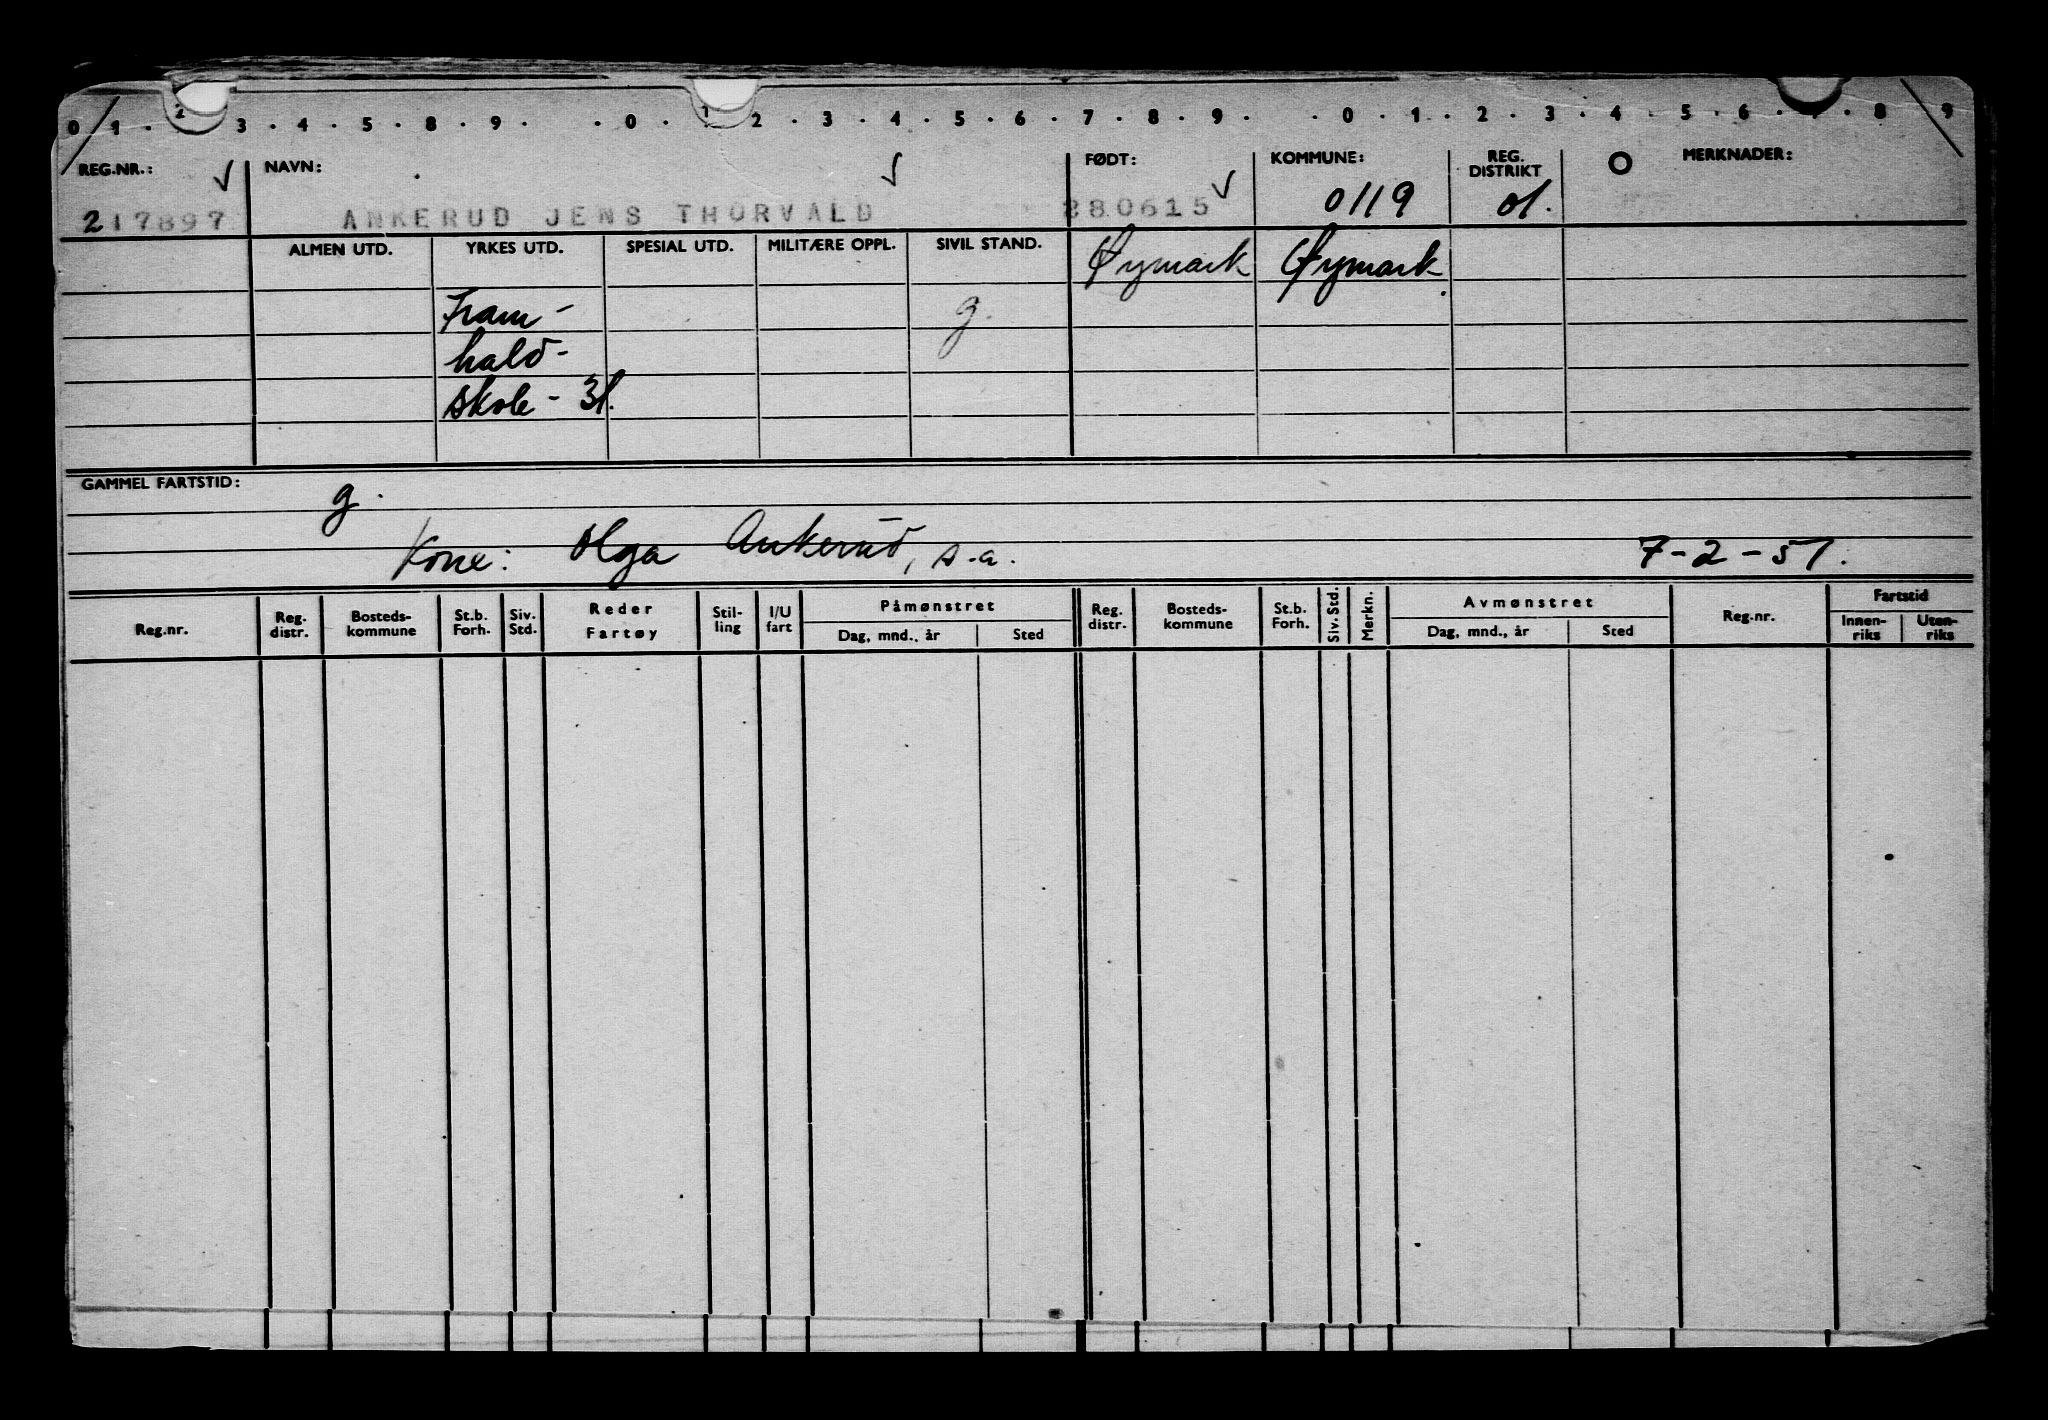 0 1 . 2 3 . 4 . 5 . 8 . 9 . . 0 . 1 2 . 3 . 4 . 5 . 6 . 7 . 8 . 9 . . 0 . 1 . 2 . 3 . 4 . 5 . 6 . 7 . 8 9
REG.NR.: NAVN: FØDT: KOMMUNE: REG. DISTRIKT MERKNADER:
217897 ANKERUD JENS THORVALD 280615 0119 01.
ALMEN UTD. YRKES UTD. SPESIAL UTD. MILITÆRE OPPL. SIVIL STAND. Øymark Øymark
Fram- g.
hald-
skole - 31.
GAMMEL FARTSTID: g.
Kone: Olga Ankerud, s.a. 7-2-51.
Reg.nr. Reg. distr. Bosteds-kommune St.b. Forh. Siv. Std. Reder Fartøy Stil-ling I/U fart Påmønstret Reg. distr. Bosteds-kommune St.b. Forh. Siv. Std. Merkn. Avmønstret Reg.nr. Fartstid
Dag, mnd., år Sted Dag, mnd., år Sted Innen-riks Uten-riks